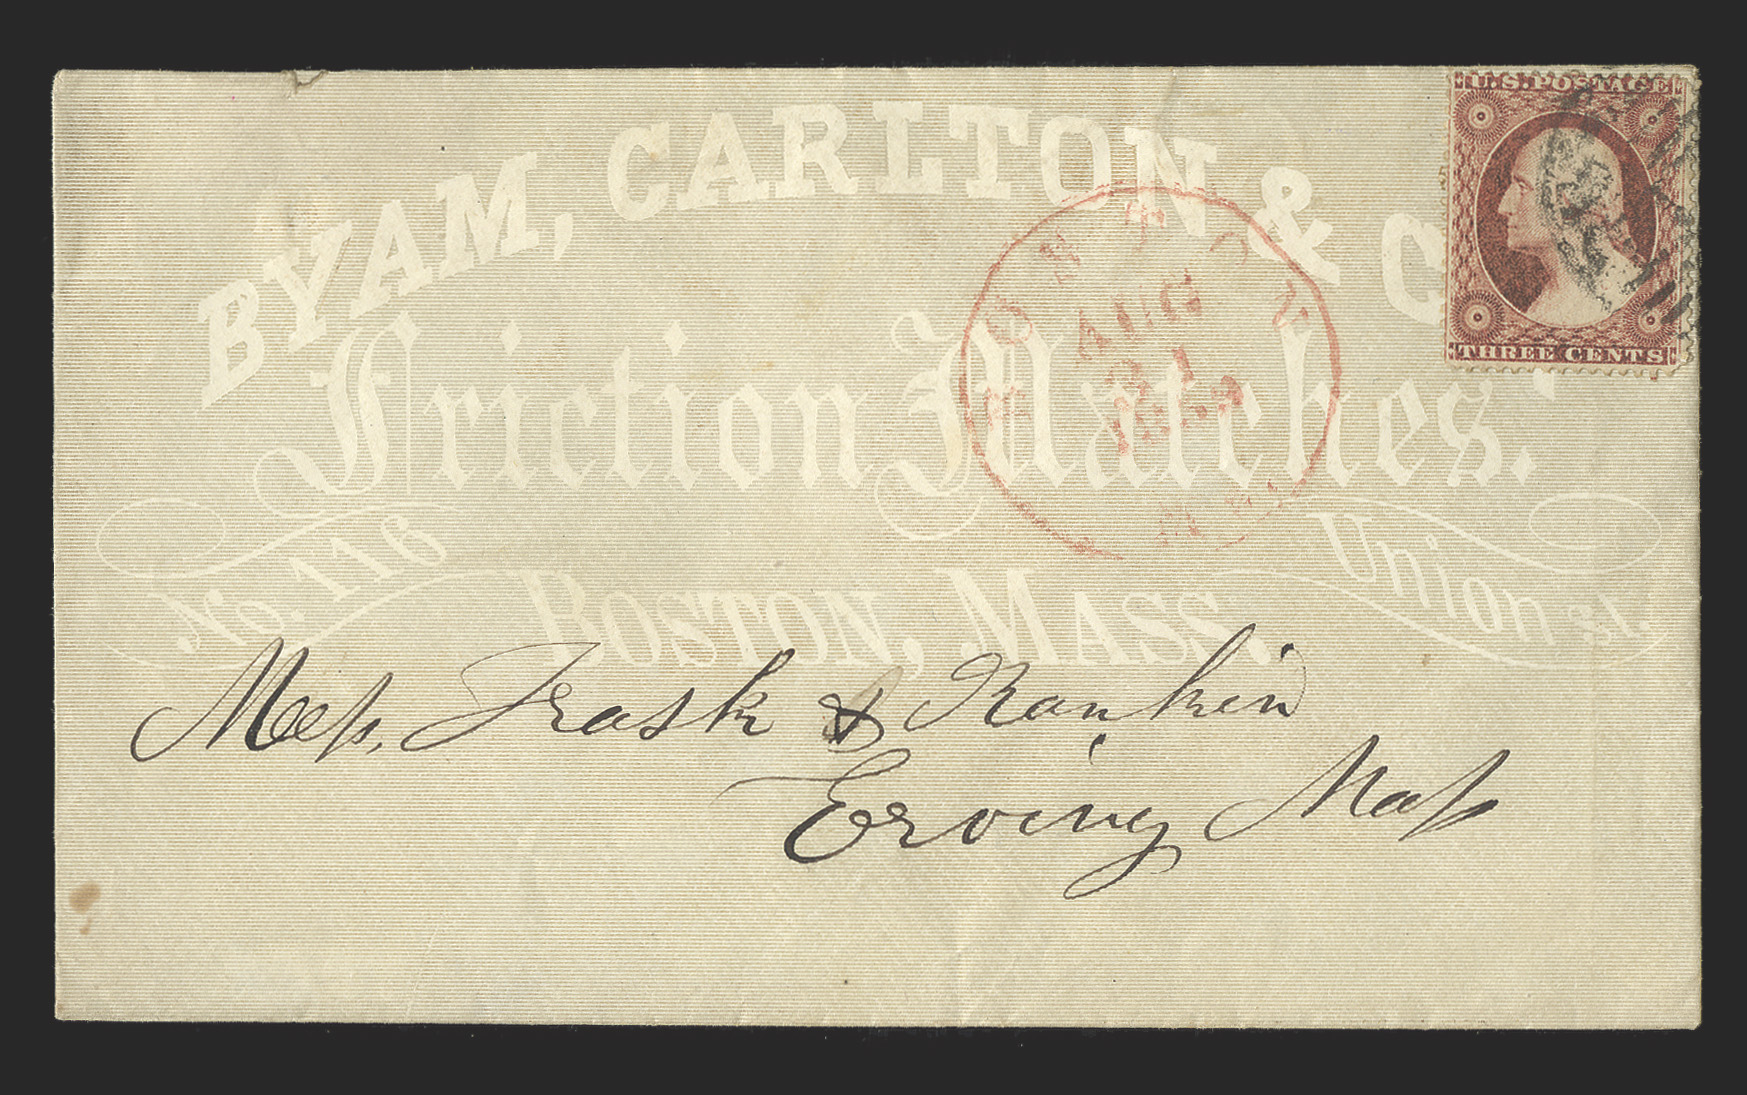 U.S. POSTAGE
THREE CENTS
BYAM, CARLTON & C
Friction Matches.
No. 116
Union St.
BOSTON, MASS.
AUG
31
Mess, Trask & Rankin
Erving Mass